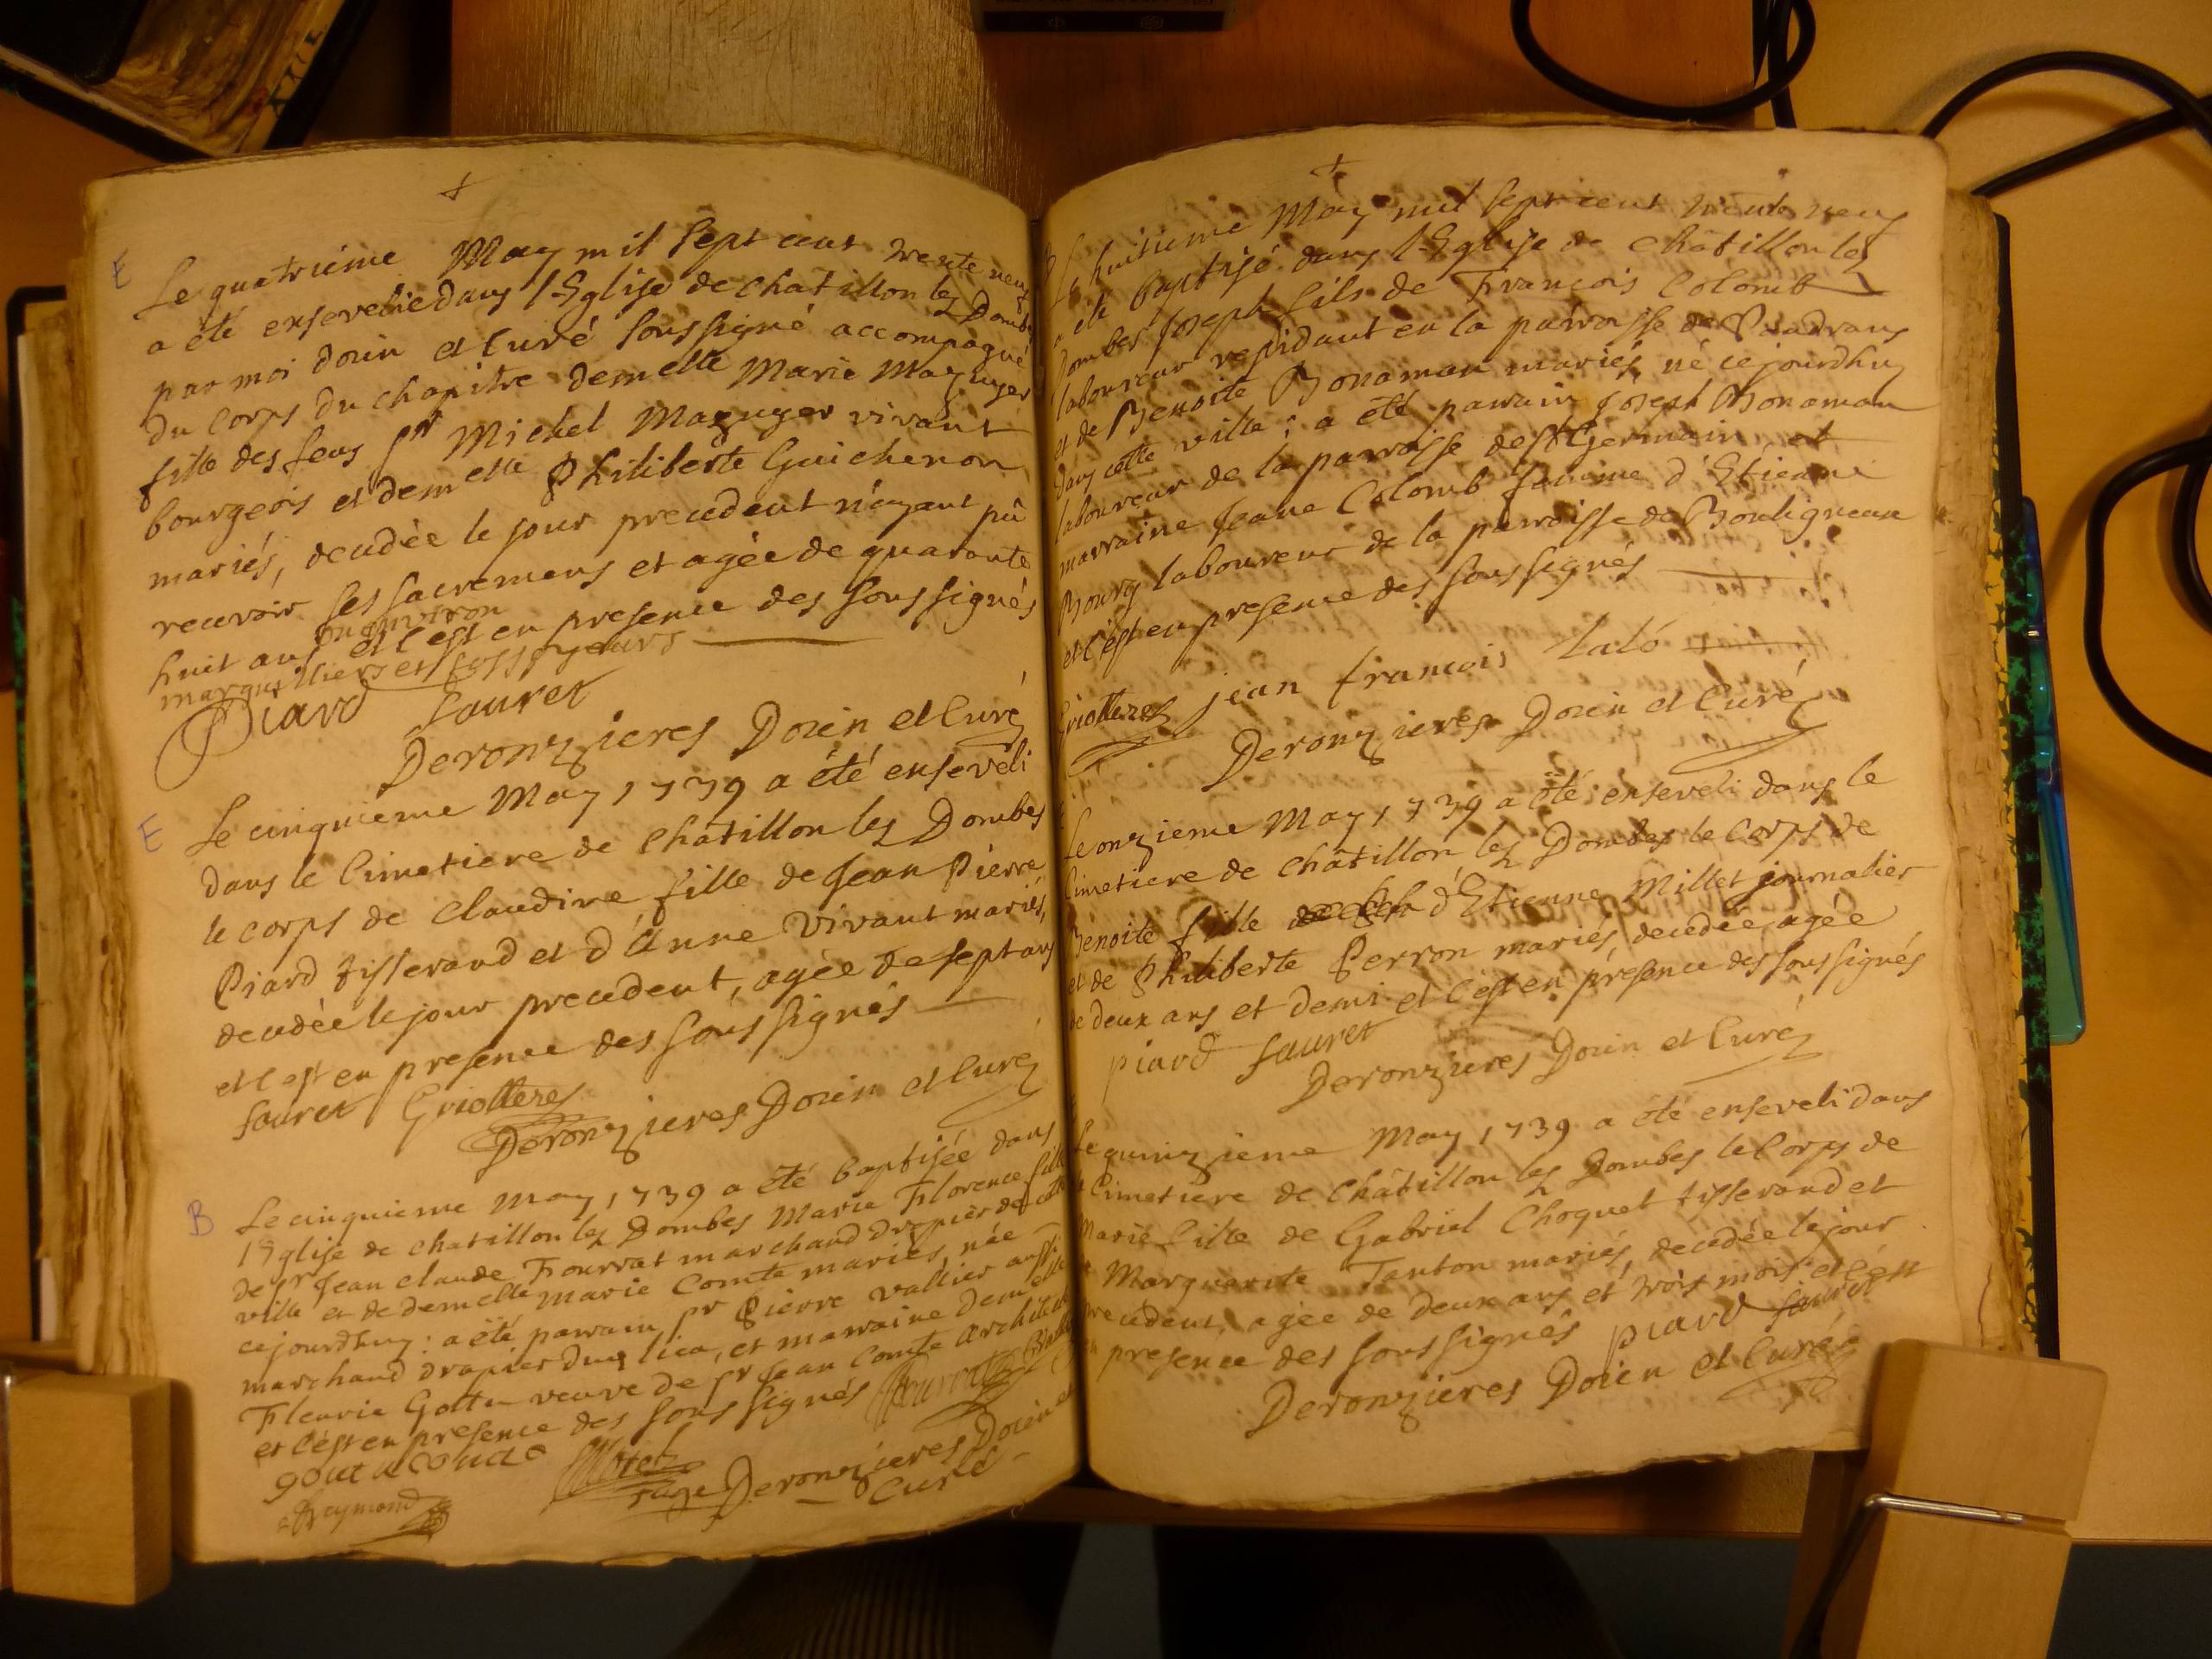 E
Le quatrieme May mil Sept cent trente neuf
a été ensevelie dans l'Eglise de Chatillon lez Dombes
par moi Doien et Curé Soussigné accompagné
du Corps du chapitre demelle Marie Mazuyer
fille des feus Sr Michel Mazuyer vivant
bourgeois et demelle Philiberte Guichenon
mariés, decedée le jour precedent n'ayant pû
recevoir ses Sacremens et agée de quarante
huit ans ou environ et c'est en presence des Soussignés
marguilliers et fossoyeurs
Piard Sauret
Deronzieres Doien et Curé
E
Le cinquieme May 1739 a été enseveli
dans le Cimetiere de Chatillon lez Dombes
le corps de Claudine fille de Jean Pierre
Piard tisserand et d'Anne Vivant mariés,
decedée le jour precedent, agée de sept ans
et c'est en presence des Soussignés
Sauret Griotterez
Deronzieres Doien et Curé
B
Le cinquieme May 1739 a été baptisée dans
l'Eglise de Chatillon lez Dombes Marie Florence fille
de Sr Jean Claude Fourrat marchand drapier de cette
ville et de demelle Marie Comte mariés, née
cejourdhuy : a été parrain Sr Pierre Vallier aussi
marchand drapier du lieu, et marraine demelle
Fleurie Gottu veuve de Sr Jean Comte architecte
et c'est en presence des Soussignés
Deronzieres Doien et
Raymond Curé
Le huitieme May mil Sept cent trente neuf
a été baptisé dans l'Eglise de Châtillon lez
Dombes Joseph fils de François Colomb
laboureur residant en la paroisse de
et de Benoite Bonaman mariés, né cejourdhuy
dans cette ville ; a été parrain Joseph Bonaman
laboureur de la paroisse de St Germain et
marraine Jeane Colomb femme d'Etienne
Bourg laboureur de la paroisse de Bouligneux
et c'est en presence des Soussignés
Griotterez jean francois Laló
Deronzieres Doien et Curé
Le onzieme May 1739 a été enseveli dans le
Cimetiere de Châtillon lez Dombes le Corps de
Benoite fille d'Etienne Millet journalier
et de Philiberte Perron mariés, decedée, agée
de deux ans et demi et c'est en présence des Soussignés
piard Sauret
Deronzieres Doien et Curé
Le quinzieme May 1739 a été enseveli dans
le Cimetiere de Châtillon lez Dombes le Corps de
Marie fille de Gabriel Choquet tisserand et
de Marguerite Tanton mariés, decedée le jour
precedent, agée de deux ans et trois mois et c'est
en presence des Soussignés piard Sauret
Deronzieres Doien et Curé